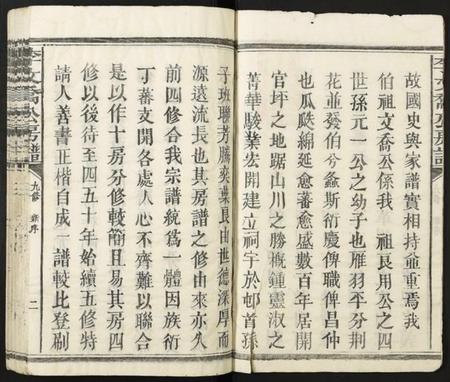 故國史與家譜實相持並重焉我
伯祖文喬公係我 祖長用公之四
世孫元一公之幼子也雁羽平分荆
花並發伯兮螽斯衍慶俾職俾昌仲
也瓜瓞綿延愈蕃愈盛數百年居開
官坪之地踞山川之勝槪鍾靈淑之
菁華駿業宏開建立祠宇於邨首孫
子班聯芳騰奕葉良由世德深厚而
源遠流長也其房譜之修由來亦久
前四修合我宗譜統爲一體因族衍
丁蕃文開各處人心不齊難以聯合
是以作十房分修較簡且易其房四
修以後待至四五十年始續五修特
請人善書正楷自成一譜較比登刷
李文喬公房譜
九修
序
二